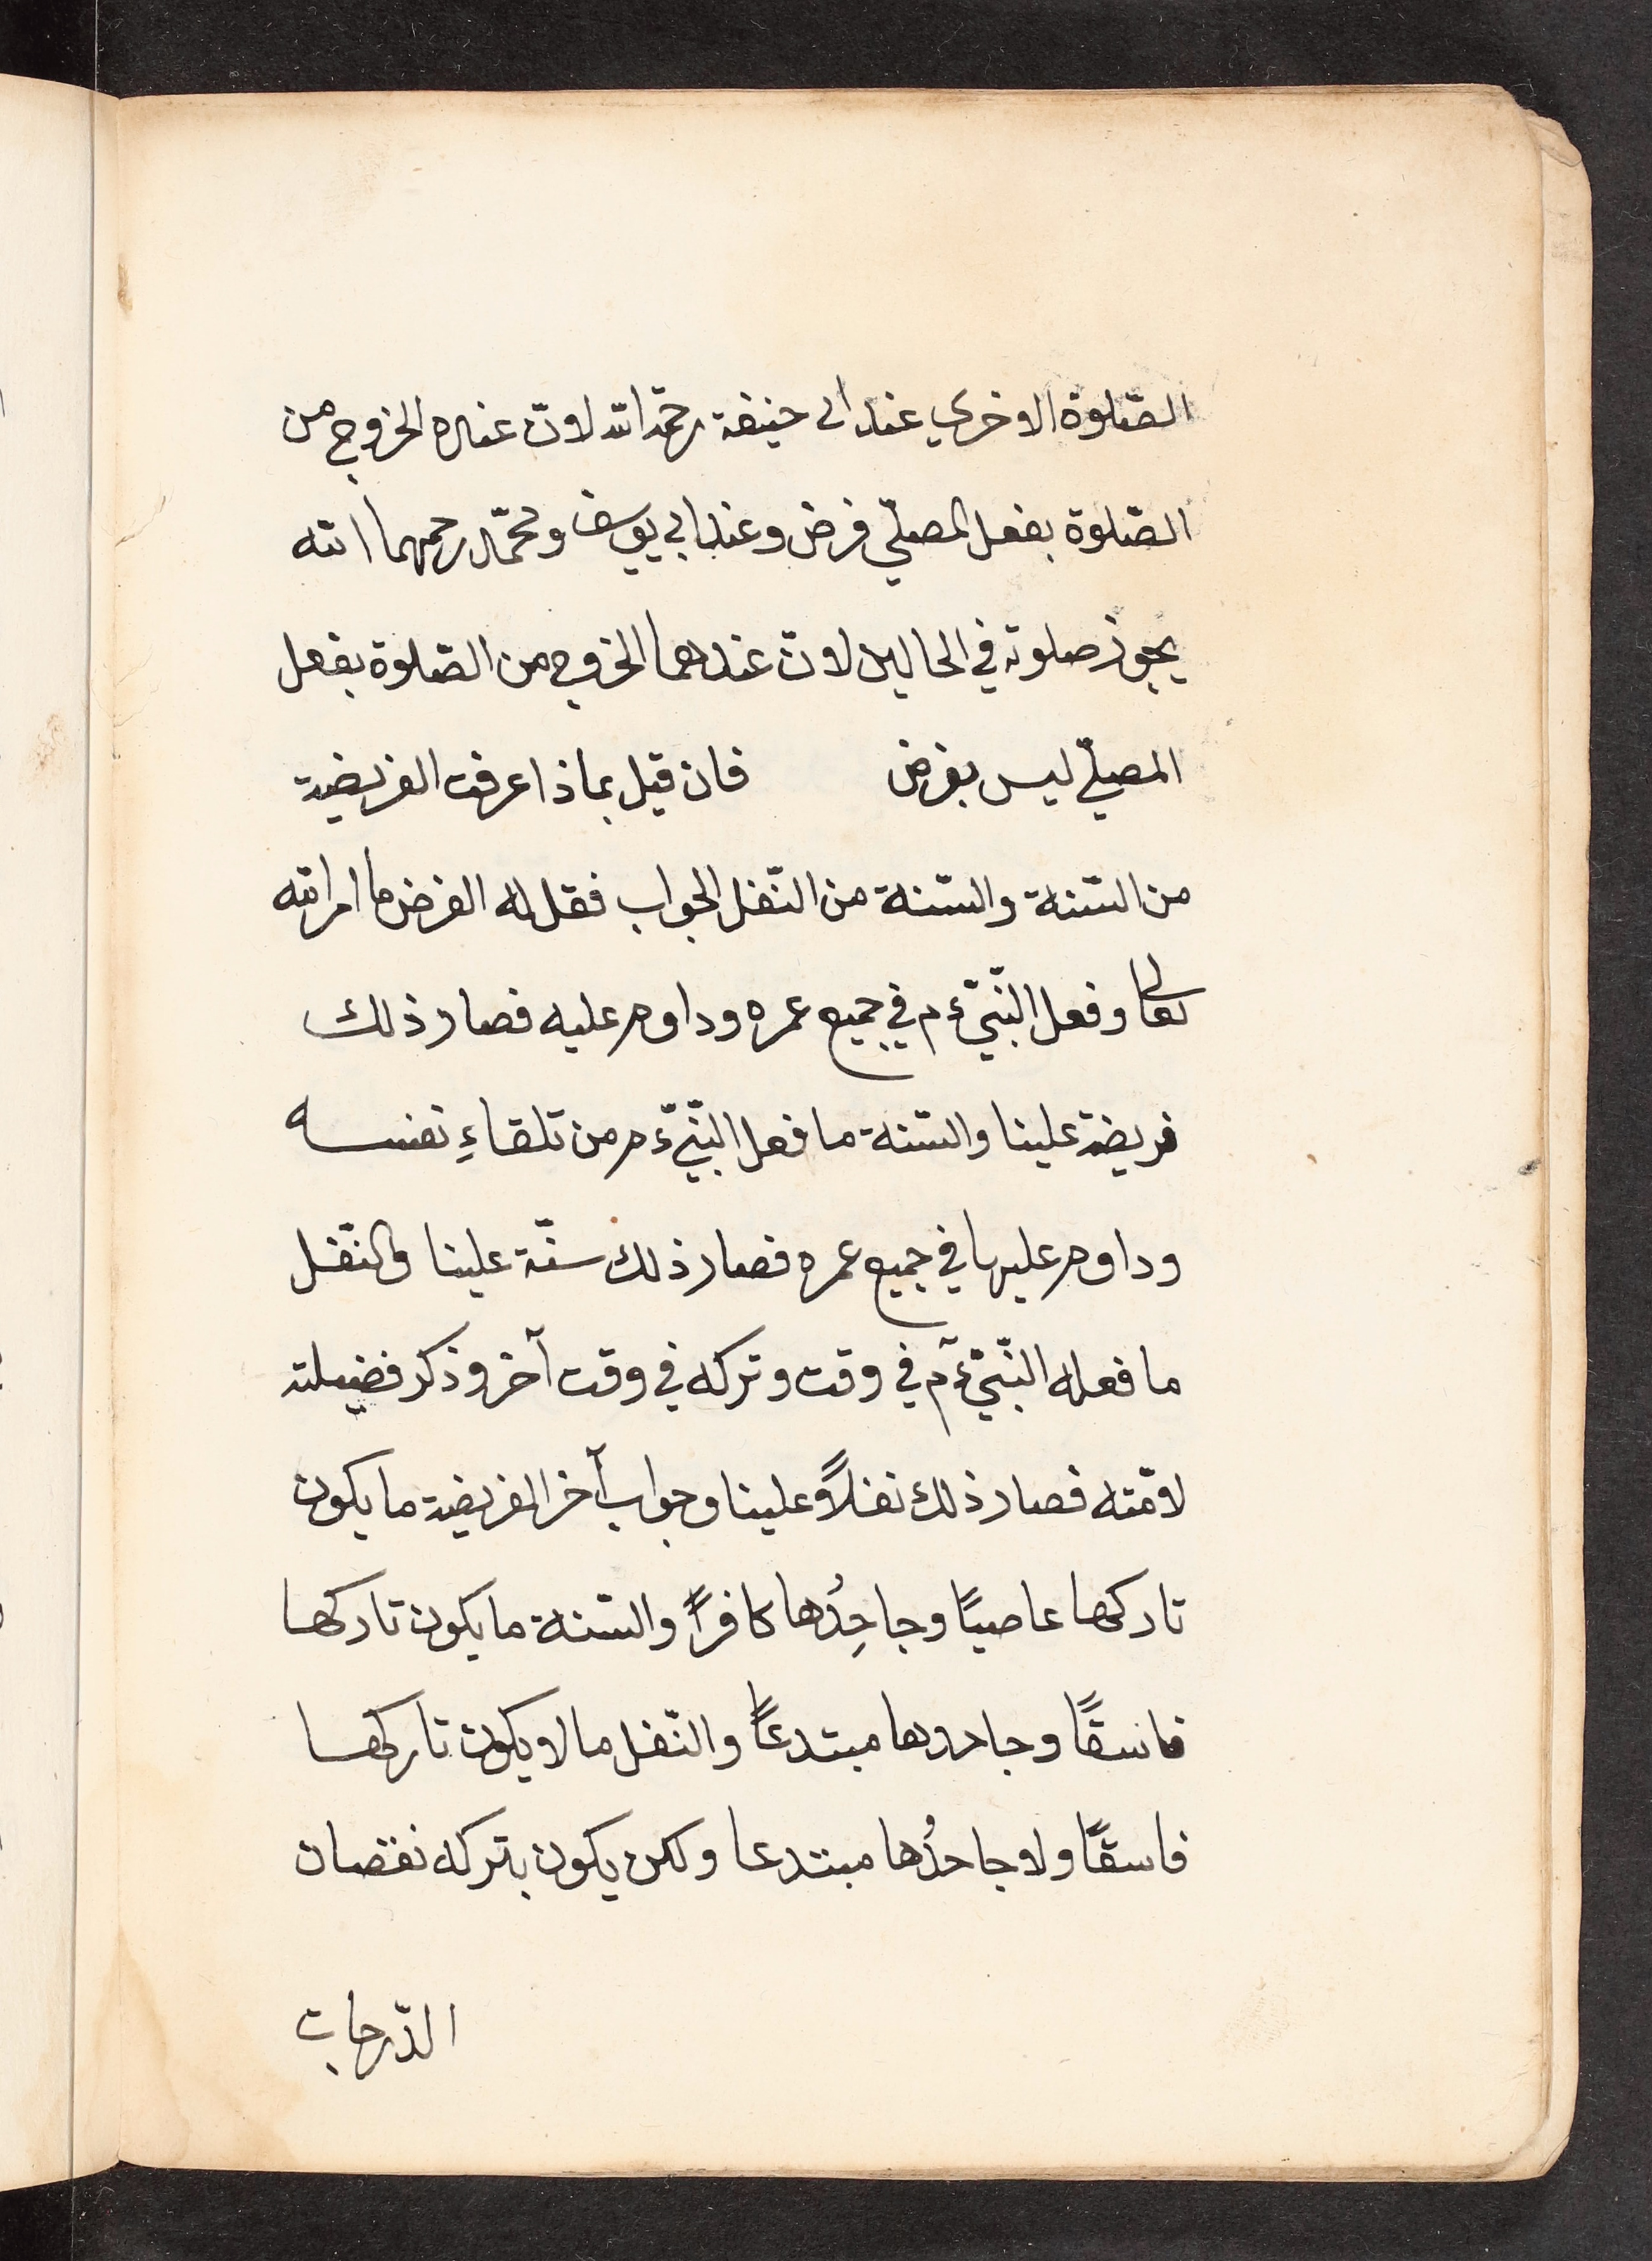 الصّلوة الاخري عند ابي حنيفة رحمّه الله لانّ عنده الخروج من
الصّلوة بفعل المصلّي فرض وعند ابي يوسف ومحمّد رحمهما الله
يجوز صلوته في الحالين لانّ عندهما الخروج من الصّلوة بفعل
المصلّي ليس بفرض فان قيل بماذا عرفت الفريضة
من السّنة والسّنة من النّفل الجواب فقل له الفرض ما امر الله
تعالى وفعل النّبيّ ءم في جميع عمره وداوم عليه فصار ذلك
فريضة علينا والسّنة ما فعل النّبيّ ءم من تلقاءِ نفسه
وداوم عليها في جميع عمره فصار ذلك سنّة علينا والنّفل
ما فعله النّبيّ ءم في وقت وتركه في وقت آخر وذكر فضيلته
لامّته فصار ذلك نفلاً علينا وجواب آخر الفريضة ما يكون
تاركها عاصيًا وجاحِدُها كافرًا والسّنة ما يكون تاركها
فاسقًا وجاحدها مبتدعًا والنّفل ما لا يكون تاركها
فاسقًا ولا جاحدُها مبتدعا ولكن يكون بتركه نقصان
الدّرجات